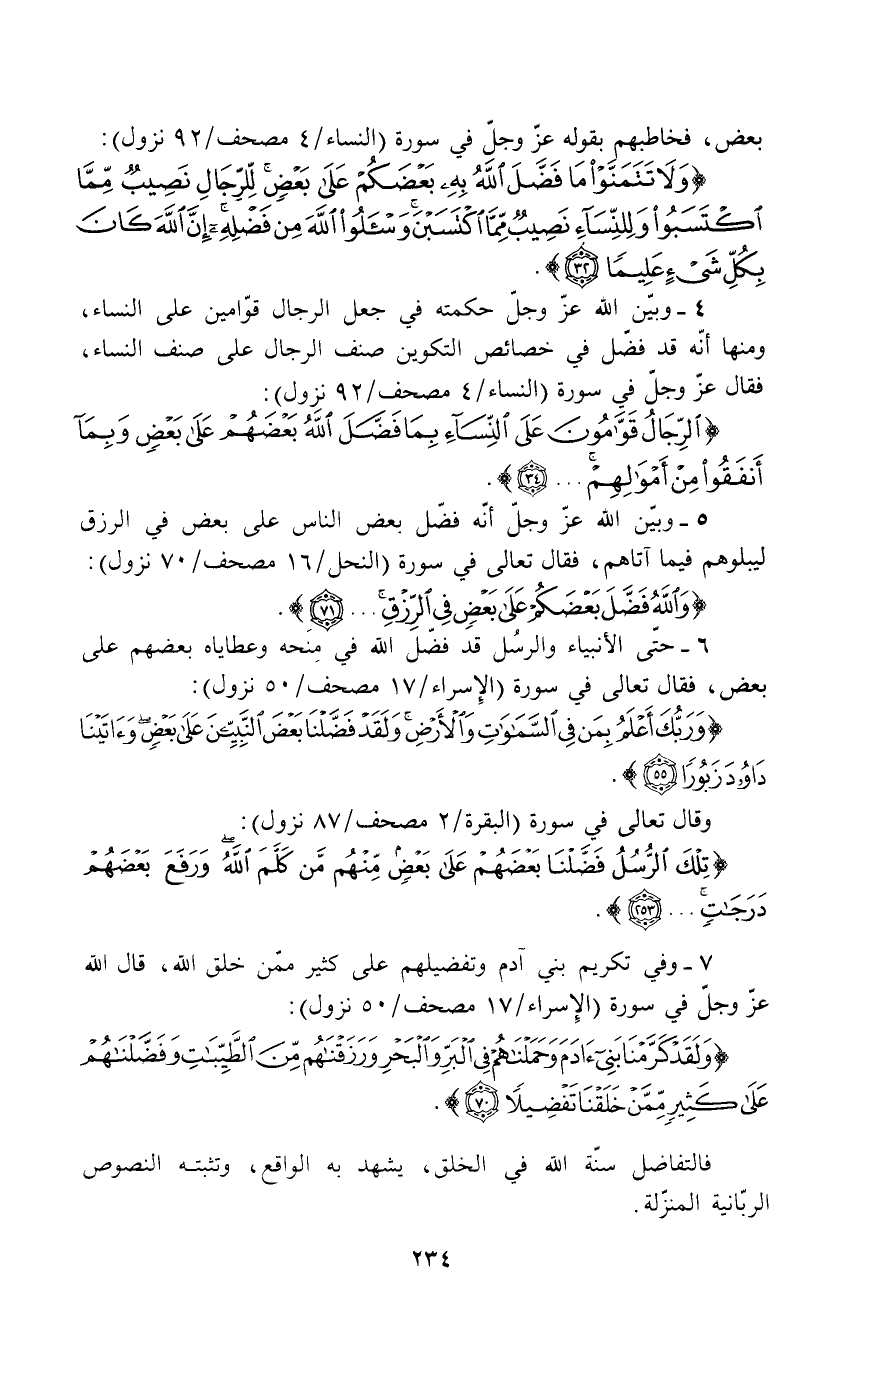 بعض، فخاطبهم بقوله عزّ وجلّ في سورة (النساء/٤ مصحف/٩٢ نزول):
﴿وَلَا تَتَمَنَّوْا۟ مَا فَضَّلَ ٱللَّهُ بِهِۦ بَعْضَكُمْ عَلَىٰ بَعْضٍۚ لِّلرِّجَالِ نَصِيبٌ مِّمَّا
ٱكْتَسَبُوا۟ وَلِلنِّسَآءِ نَصِيبٌ مِّمَّا ٱكْتَسَبْنَۚ وَسْـَٔلُوا۟ ٱللَّهَ مِن فَضْلِهِۦٓۚ إِنَّ ٱللَّهَ كَانَ
بِكُلِّ شَىْءٍ عَلِيمًا ٣٢﴾.
٤ - وبيّن الله عزّ وجلّ حكمته في جعل الرجال قوّامين على النساء،
ومنها أنّه قد فضّل في خصائص التكوين صنف الرجال على صنف النساء،
فقال عزّ وجلّ في سورة (النساء/٤ مصحف/٩٢ نزول):
﴿ٱلرِّجَالُ قَوَّٰمُونَ عَلَى ٱلنِّسَآءِ بِمَا فَضَّلَ ٱللَّهُ بَعْضَهُمْ عَلَىٰ بَعْضٍ وَبِمَآ
أَنفَقُوا۟ مِنْ أَمْوَٰلِهِمْۚ ... ٣٤﴾.
٥ - وبيّن الله عزّ وجلّ أنّه فضّل بعض الناس على بعض في الرزق
ليبلوهم فيما آتاهم، فقال تعالى في سورة (النحل/١٦ مصحف/٧٠ نزول):
﴿وَٱللَّهُ فَضَّلَ بَعْضَكُمْ عَلَىٰ بَعْضٍ فِى ٱلرِّزْقِۚ ... ٧١﴾.
٦ - حتّى الأنبياء والرسُل قد فضّل الله في مِنَحه وعطاياه بعضهم على
بعض، فقال تعالى في سورة (الإسراء/١٧ مصحف/٥٠ نزول):
﴿وَرَبُّكَ أَعْلَمُ بِمَن فِى ٱلسَّمَٰوَٰتِ وَٱلْأَرْضِۗ وَلَقَدْ فَضَّلْنَا بَعْضَ ٱلنَّبِيِّـۧنَ عَلَىٰ بَعْضٍۖ وَءَاتَيْنَا
دَاوُۥدَ زَبُورًا ٥٥﴾.
وقال تعالى في سورة (البقرة/٢ مصحف/٨٧ نزول):
﴿تِلْكَ ٱلرُّسُلُ فَضَّلْنَا بَعْضَهُمْ عَلَىٰ بَعْضٍۘ مِّنْهُم مَّن كَلَّمَ ٱللَّهُۖ وَرَفَعَ بَعْضَهُمْ
دَرَجَٰتٍۚ ... ٢٥٣﴾.
٧ - وفي تكريم بني آدم وتفضيلهم على كثير ممّن خلق الله، قال الله
عزّ وجلّ في سورة (الإسراء/١٧ مصحف/٥٠ نزول):
﴿وَلَقَدْ كَرَّمْنَا بَنِىٓ ءَادَمَ وَحَمَلْنَٰهُمْ فِى ٱلْبَرِّ وَٱلْبَحْرِ وَرَزَقْنَٰهُم مِّنَ ٱلطَّيِّبَٰتِ وَفَضَّلْنَٰهُمْ
عَلَىٰ كَثِيرٍ مِّمَّنْ خَلَقْنَا تَفْضِيلًا ٧٠﴾.
فالتفاضل سنّة الله في الخلق، يشهد به الواقع، وتثبته النصوص
الربّانية المنزّلة.
٢٣٤